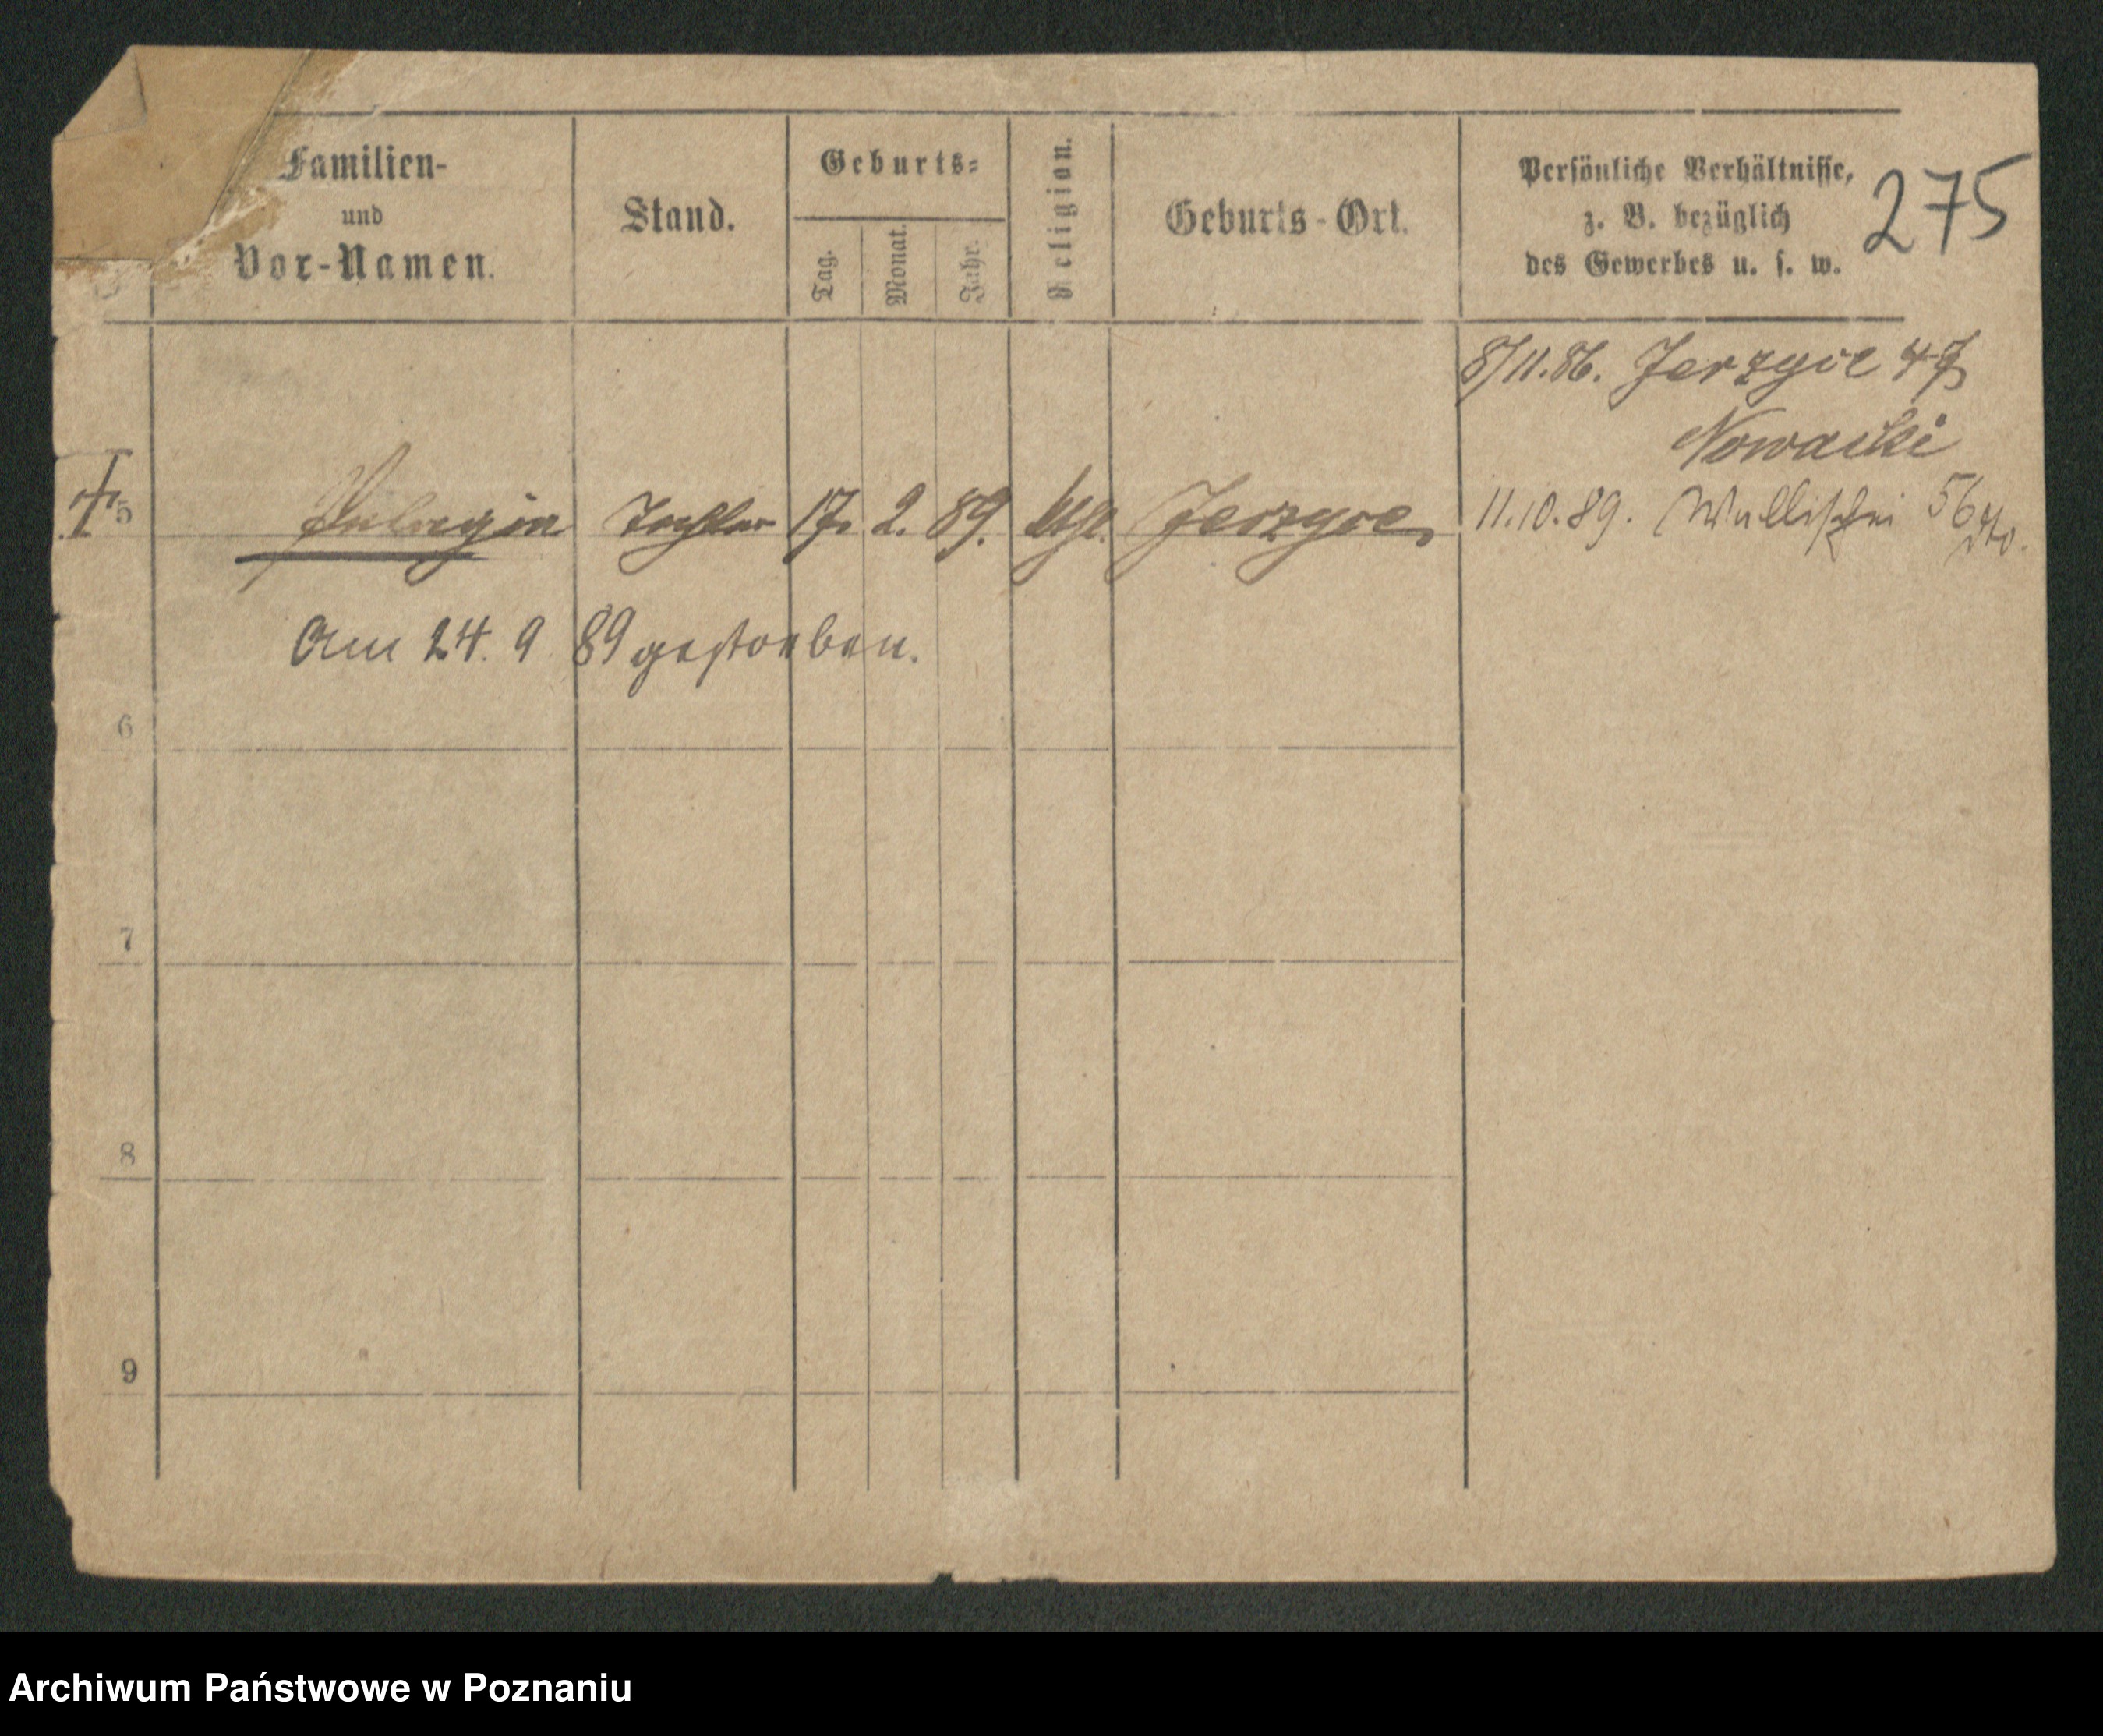 Familien-
und
Vor-Namen.
Stand.
Geburts-
Tag.
Monat.
Jahr.
Religion.
Geburts-Ort.
Persönliche Verhältnisse,
z. B. bezüglich
des Gewerbes u. s. w.
275
8/11.86. Jerzyce 47
Nowacki
5 Pelagia Tochter 17. 2. 89. ktħl. Jerzyce,
11.10.89. Wallischei 56
Am 24. 9 89 gestorben.
6
7
8
9
Archiwum Państwowe w Poznaniu